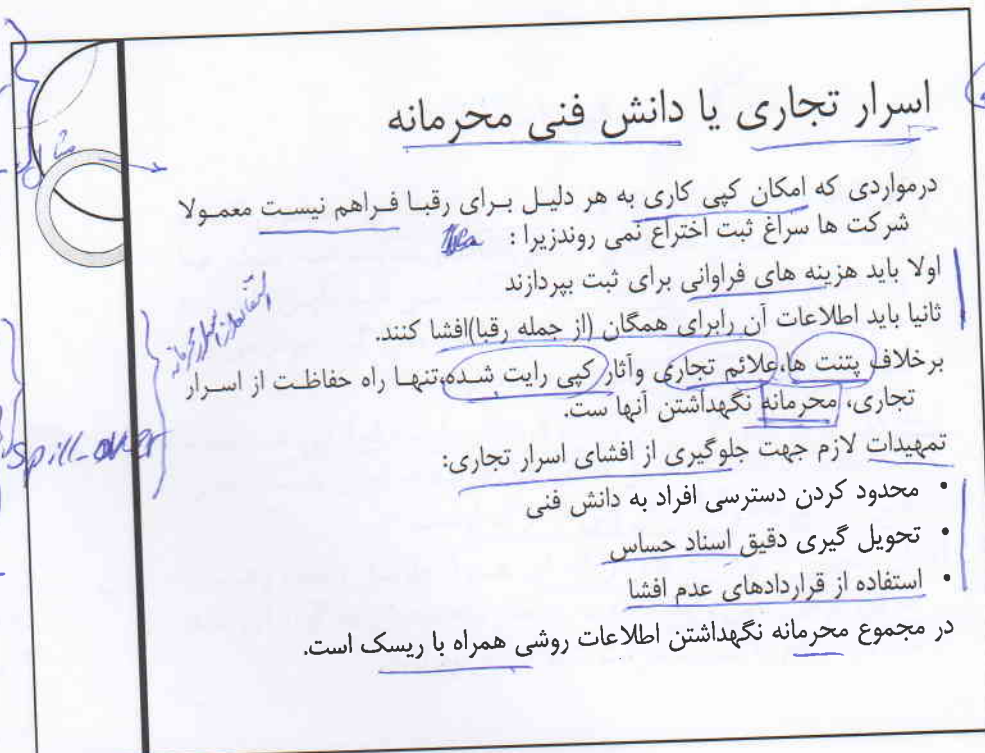 اسرار تجاری یا دانش فنی محرمانه
درمواردی که امکان کپی کاری به هر دلیل بـرای رقبـا فـراهم نیسـت معمـولا
شرکت ها سراغ ثبت اختراع نمی روندزیرا :
اولا باید هزینه های فراوانی برای ثبت بپردازند
ثانیا باید اطلاعات آن رابرای همگان (از جمله رقبا)افشا کنند.
برخلاف پتنت ها،علائم تجاری وآثار کپی رایت شـده،تنهـا راه حفاظـت از اسـرار
تجاری، محرمانه نگهداشتن آنها ست.
تمهیدات لازم جهت جلوگیری از افشای اسرار تجاری:
• محدود کردن دسترسی افراد به دانش فنی
• تحویل گیری دقیق اسناد حساس
• استفاده از قراردادهای عدم افشا
در مجموع محرمانه نگهداشتن اطلاعات روشی همراه با ریسک است.
مثال
Spill-over